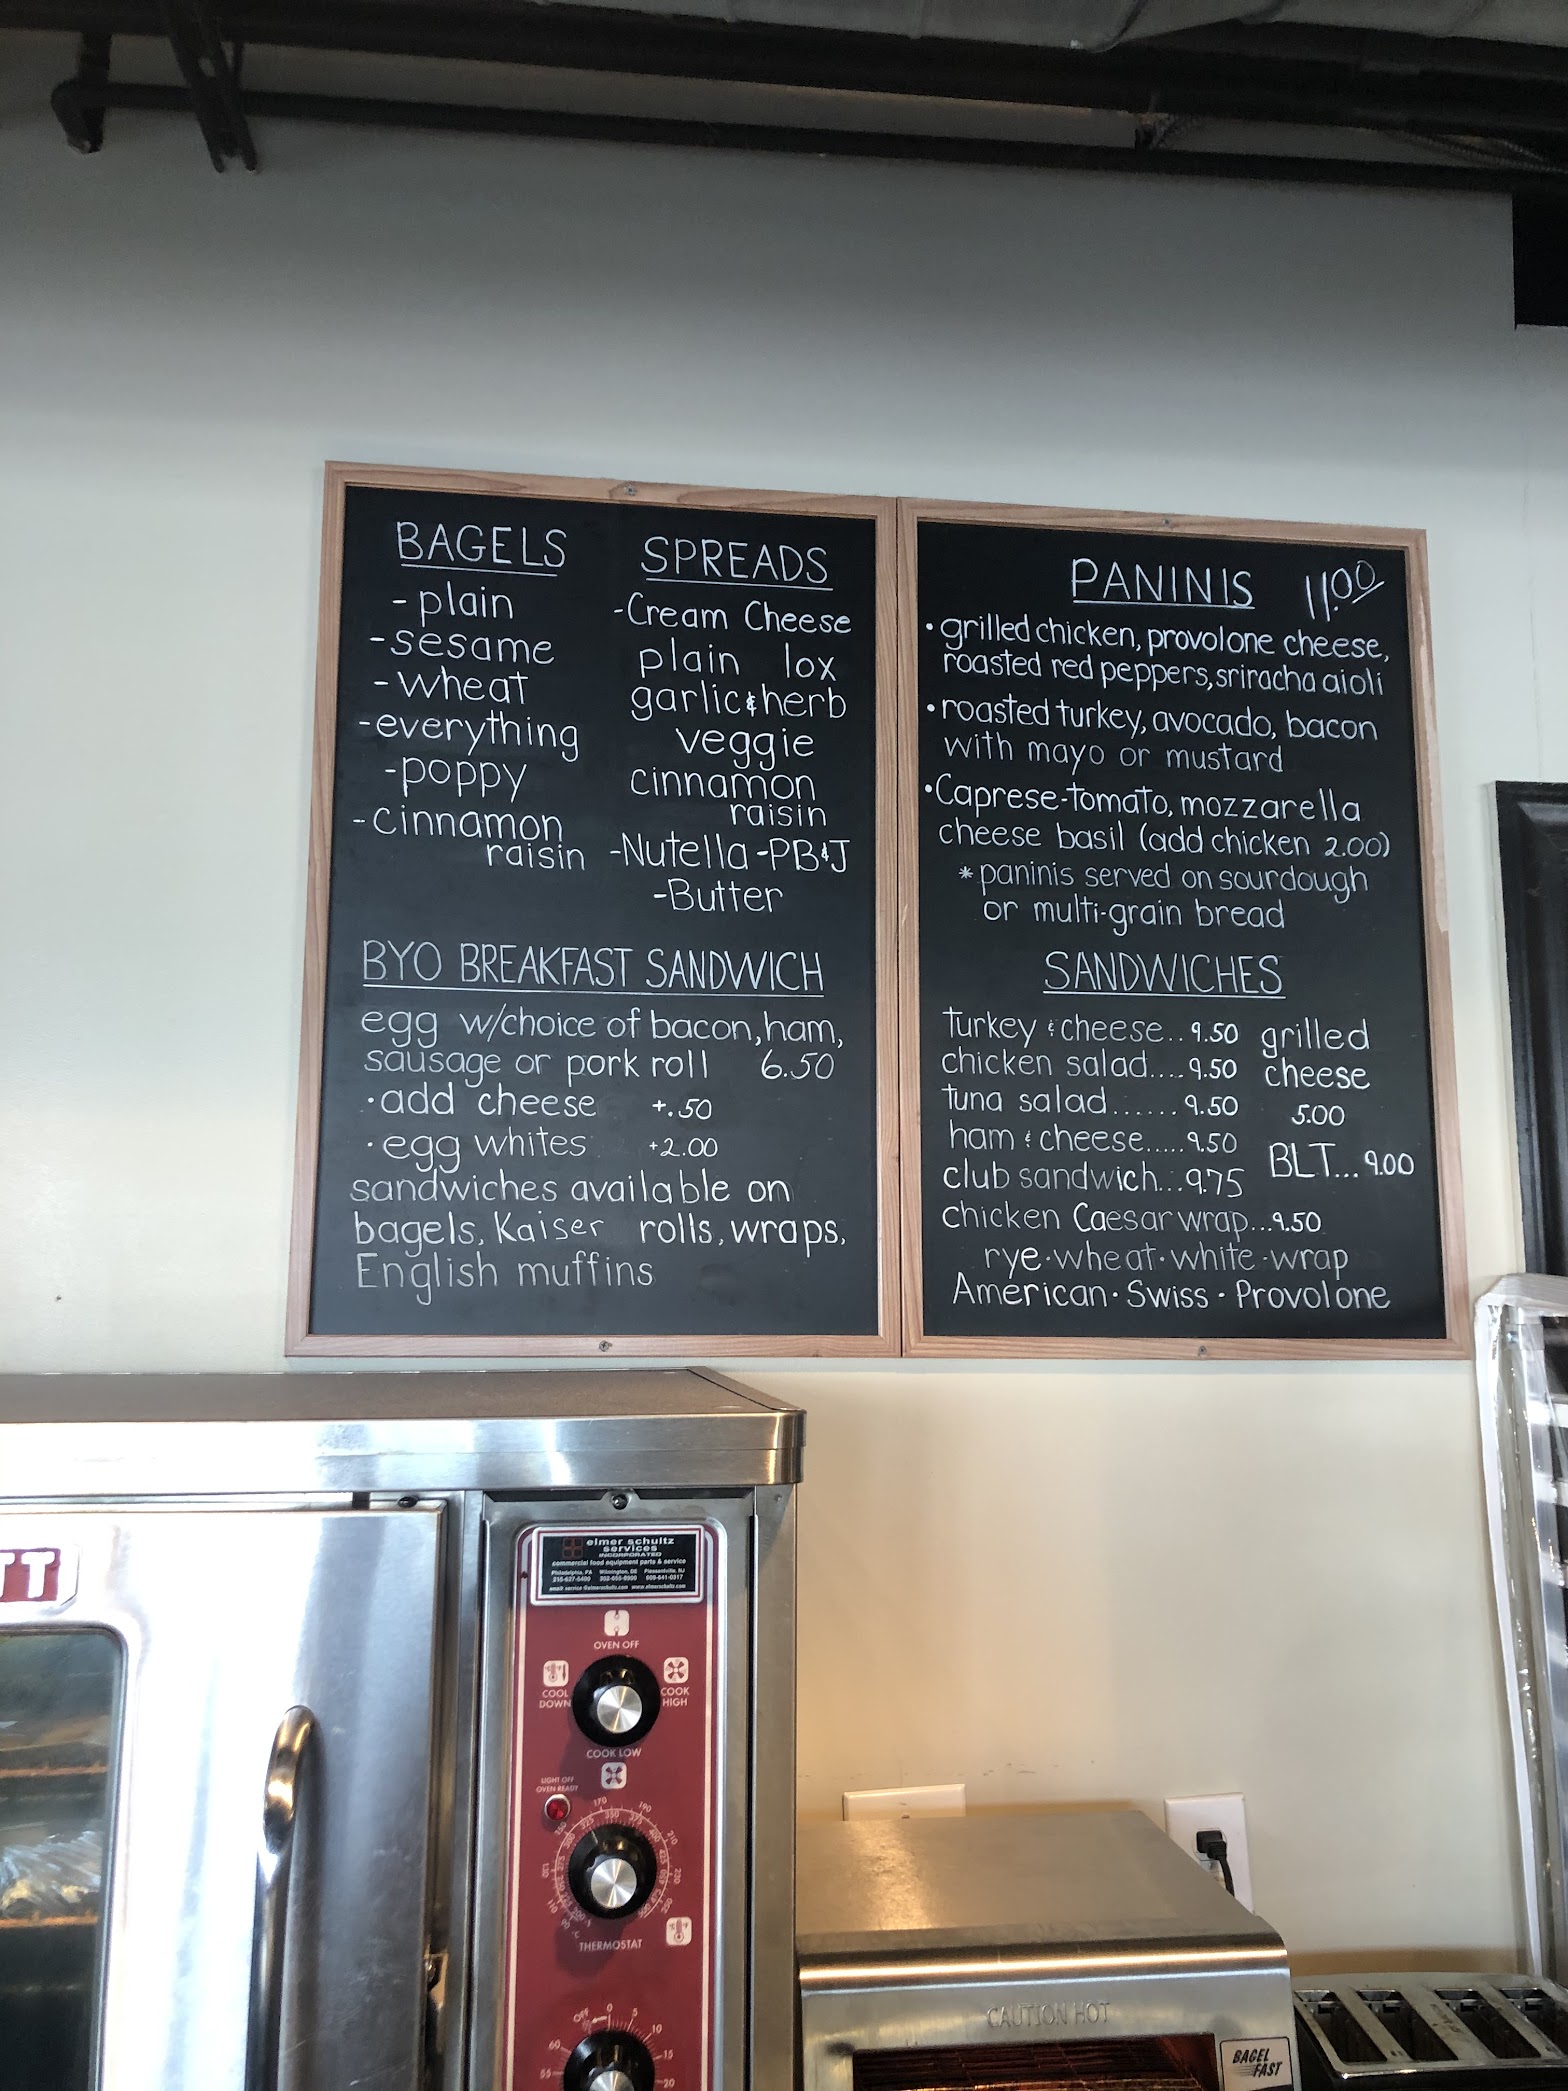 BAGELS
-plain
-sesame
-wheat
-everything
-poppy
-cinnamon
raisin
SPREADS
-Cream Cheese
plain lox
garlic & herb
veggie
cinnamon
raisin
-Nutella -PB&J
-Butter
BYO BREAKFAST SANDWICH
egg w/choice of bacon, ham,
sausage or pork roll 6.50
·add cheese +.50
·egg whites +2.00
sandwiches available on
bagels, Kaiser rolls, wraps,
English muffins
PANINIS 11.00
•grilled chicken, provolone cheese,
roasted red peppers, sriracha aioli
•roasted turkey, avocado, bacon
with mayo or mustard
•Caprese-tomato, mozzarella
cheese basil (add chicken 2.00)
*paninis served on sourdough
or multi-grain bread
SANDWICHES
turkey & cheese..9.50
chicken salad....9.50
tuna salad.......9.50
ham & cheese.....9.50
club sandwich...9.75
chicken Caesar wrap...9.50
grilled
cheese
5.00
BLT...9.00
rye·wheat·white·wrap
American·Swiss·Provolone
TT
elmer schultz
services
INCORPORATED
commercial food equipment parts & service
Philadelphia, PA Wilmington, DE Pleasantville, NJ
215-627-5400 302-655-8900 609-641-0317
email: service@elmerschultz.com www.elmerschultz.com
OVEN OFF
COOL
DOWN
COOK
HIGH
COOK LOW
LIGHT OFF
OVEN READY
170
190
210
230
THERMOSTAT
OFF
0
5
10
15
20
55
60
CAUTION HOT
BAGEL
FAST